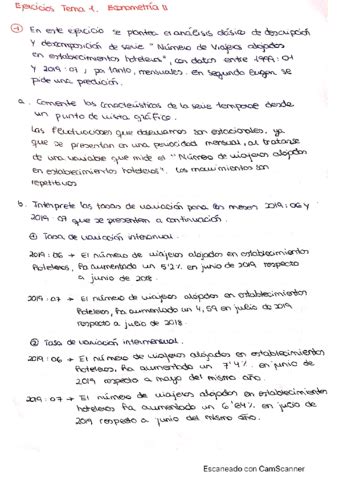 Ejercicios Tema 1. Econometría II
1 En este ejercicio se plantea el análisis clásico de descripción
y descomposición de serie "Número de viajeros alojados
en establecimientos hoteleros", con datos entre 1999:01
y 2019:07, por tanto, mensuales. En segundo lugar se
pide una predicción.
a. Comente las características de la serie temporal desde
un punto de vista gráfico.
Las fluctuaciones que observamos son estacionales, ya
que se presentan en una periocidad mensual, al tratarse
de una variable que mide el "Número de viajeros alojados
en establecimientos hoteleros". Los movimientos son
repetitivos
b. Interprete las tasas de variación para los meses 2019:06 y
2019:07 que se presentan a continuación.
① Tasa de variación interanual.
2019:06 → El número de viajeros alojados en establecimientos
hoteleros, ha aumentado un 5'2% en junio de 2019 respecto
a junio de 2018.
2019:07 → El número de viajeros alojados en establecimientos
hoteleros, ha aumentado un 4,59 en julio de 2019
respecto a julio de 2018.
② Tasa de variación intermensual.
2019:06 → El número de viajeros alojados en establecimientos
hoteleros, ha aumentado un 7'4% en junio de
2019 respecto a mayo del mismo año.
2019:07 → El número de viajeros alojados en establecimientos
hoteleros ha aumentado un 6'84% en julio de
2019 respecto a junio del mismo año.
Escaneado con CamScanner